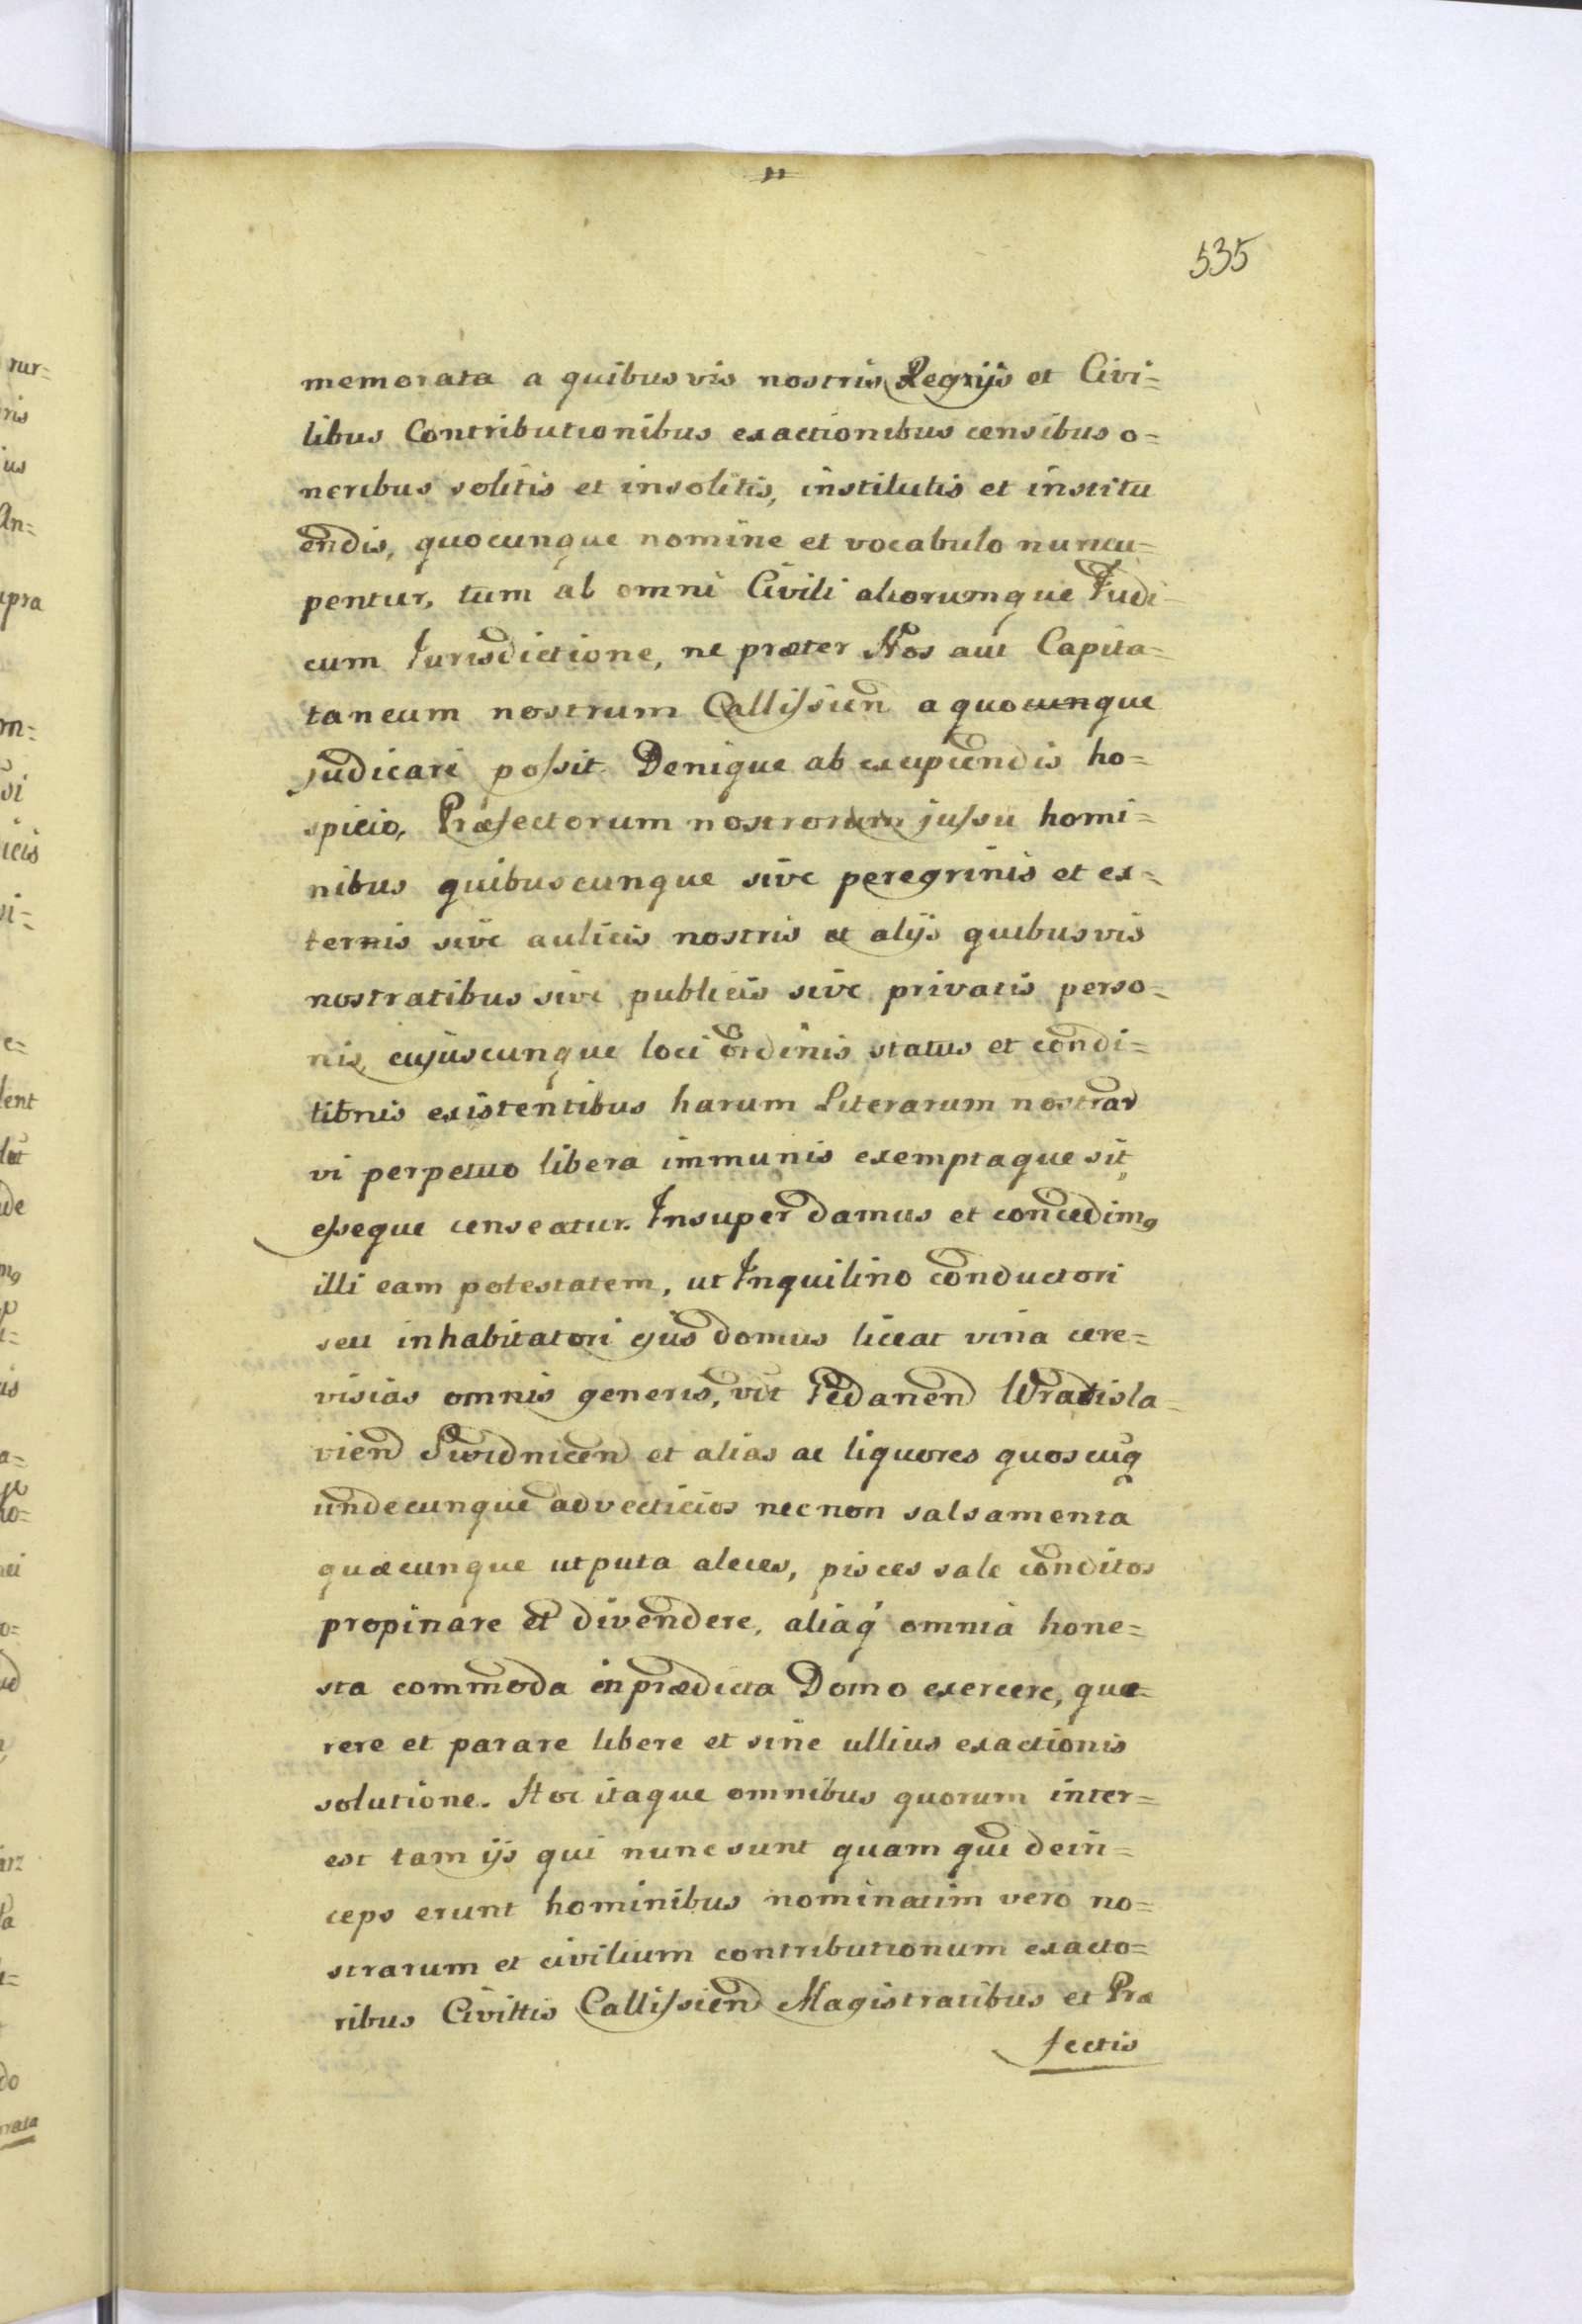 535
memorata a quibus vis nostris Regijs et Civi=
libus Contributionibus exactionibus censibus o=
neribus solitis et insolitis, institutis et institu
endis, quocunque nomine et vocabulo nuncu=
pentur, tum ab omni Civili aliorumque Judi-
cum Jurisdictione, ne præter Nos aut Capita=
taneum nostrum Callissien a quocunque
judicari possit. Denique ab excipiendis ho=
spicio, Præfectorum nostrorum jussu homi=
nibus quibuscunque sive peregrinis et ex=
ternis sive aulicis nostris et alijs quibusvis
nostratibus sive publicis sive privatis perso=
nis, cujuscunque loci ordinis status et condi=
tionis existentibus harum Literarum nostrar
vi perpetuo libera immunis exemptaque sit,
esseque censeatur. Insuper damus et concedim9
illi eam potestatem, ut Inquilino conductori
seu inhabitatori ejus domus liceat vina cere=
visias omnis generis, vit Pedanen Wratisla=
vien Swidnicen et alias ac liquores quoscuq
undecunque advecticios nec non salsamenta
quæcunque utputa aleces, pisces sale conditos
propinare et divendere, aliaq omnia hone=
sta commoda in prædicta Domo exercere, quæ=
rere et parare libere et sine ullius exactionis
solutione. Hoc itaque omnibus quorum inter=
est tam ijs qui nunc sunt quam qui dein=
ceps erunt hominibus nominatim vero no=
strarum et civilium contributionum exacto=
ribus Civittis Callissien Magistratibus et Præ
fectis